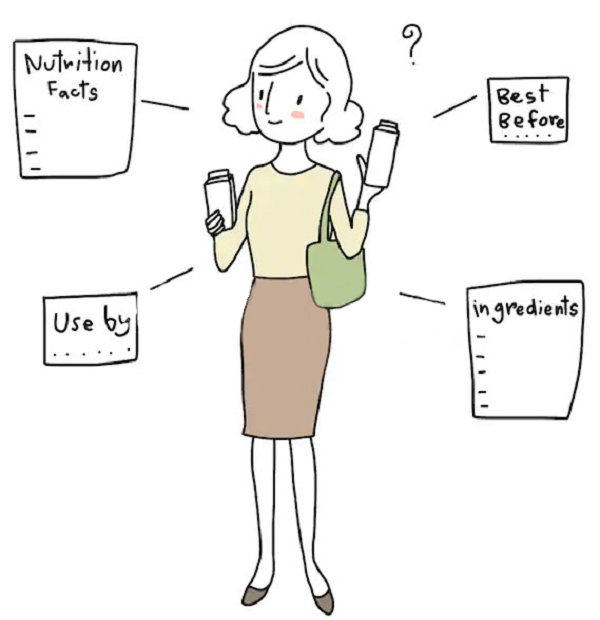 Nutrition
Facts
?
Best
Before
Use by
ingredients